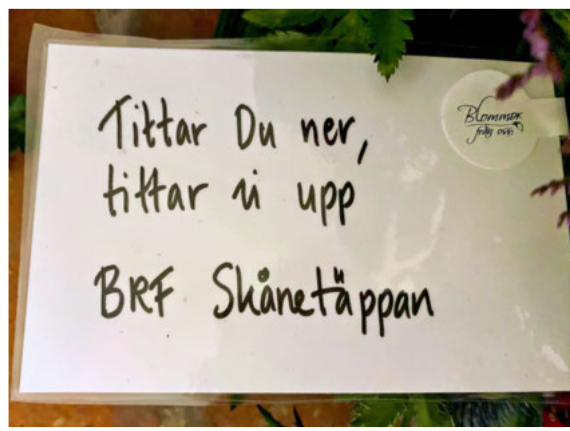 Tittar Du ner,
tittar vi upp
BRF Skånetäppan
Blommor
från oss